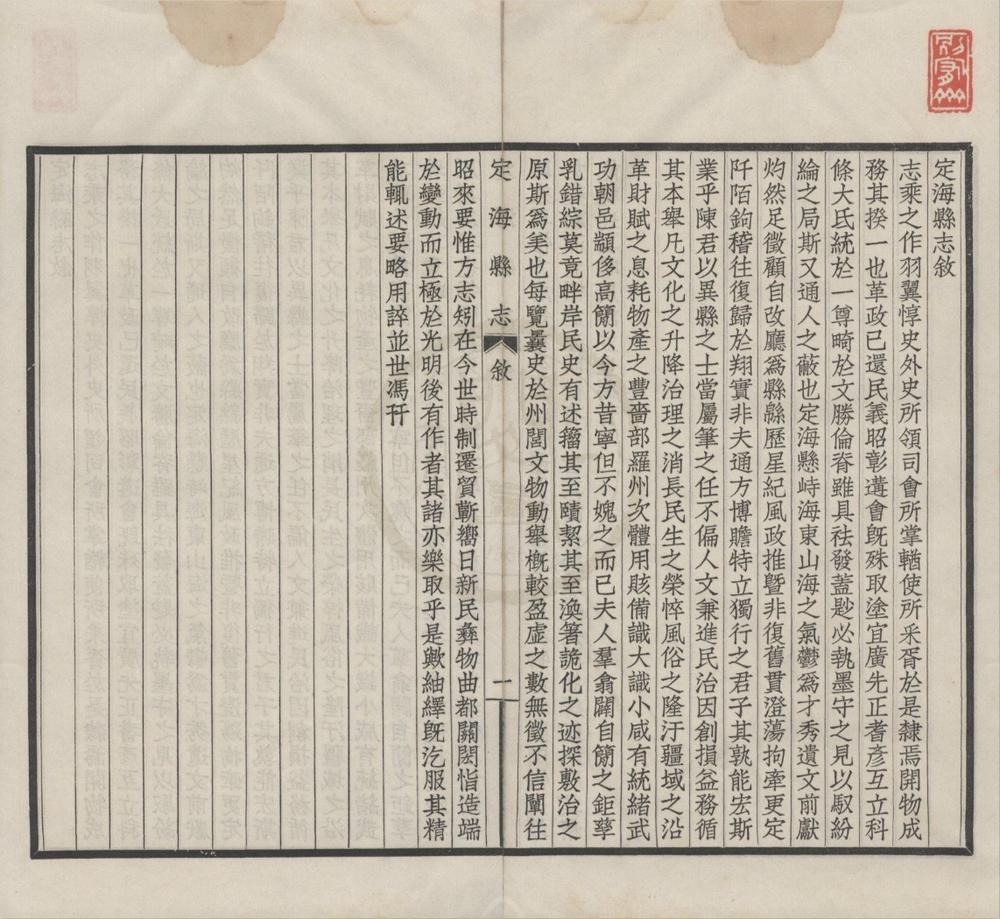 定海縣志敘
志乘之作羽翼惇史外史所領司會所掌輶使所采胥於是隸焉開物成
務其揆一也革政已還民義昭彰遘會旣殊取塗宜廣先正耆彥互立科
條大氐統於一尊畸於文勝倫脊雖具祛發蓋尟必執墨守之見以馭紛
綸之局斯又通人之蔽也定海懸峙海東山海之氣鬱爲才秀遺文前獻
灼然足徵顧自改廳爲縣縣歷星紀風政推暨非復舊貫澄蕩拘牽更定
阡陌鉤稽往復歸於翔實非夫通方博贍特立獨行之君子其孰能宏斯
業乎陳君以異縣之士當屬筆之任不偏人文兼進民治因創損益務循
其本舉凡文化之升降治理之消長民生之榮悴風俗之隆汙疆域之沿
革財賦之息耗物產之豐嗇部羅州次體用賅備識大識小咸有統緒武
功朝邑顓侈高簡以今方昔寧但不媿之而已夫人羣翕闢自簡之鉅孳
乳錯綜莫竟畔岸民史有述籀其至賾絜其至渙箸詭化之迹探敷治之
原斯爲美也每覽曩史於州閭文物動舉槪較盈虛之數無徵不信闡往
定海縣志 敘 一
昭來要惟方志矧在今世時制遷貿蘄嚮日新民彝物曲都關閎恉造端
於變動而立極於光明後有作者其諸亦樂取乎是歟紬繹旣汔服其精
能輒述要略用誶並世馮幵